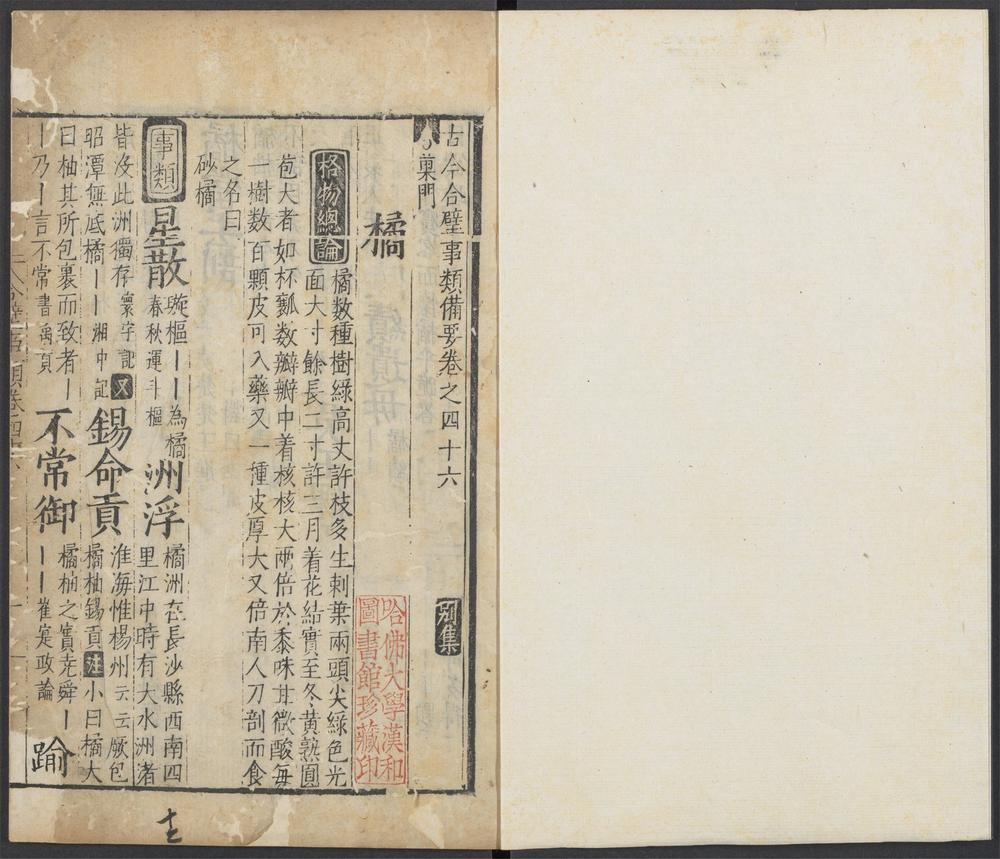 古今合璧事類備要卷之四十六
別集
菓門
橘
哈佛大學漢和
圖書館珍藏印
格物總論
橘數種樹綠高丈許枝多生刺葉兩頭尖綠色光
面大寸餘長二寸許三月着花結實至冬黃熟圓
苞大者如杯瓤數瓣瓣中着核核大兩倍於黍味甘微酸每
一樹數百顆皮可入藥又一種皮厚大又倍南人刀剖而食
之名曰
砂橘
事類
星散
璇樞丨丨為橘
春秋運斗樞
洲浮
橘洲在長沙縣西南四
里江中時有大水洲渚
皆沒此洲獨存寰宇記
又
昭潭無底橘丨丨湘中記
錫命貢
淮海惟楊州云云厥包
橘柚錫貢
注
小曰橘大
曰柚其所包裹而致者丨
丨乃丨言不常書禹貢
不常御
橘柚之實堯舜丨
丨丨崔寔政論
踰